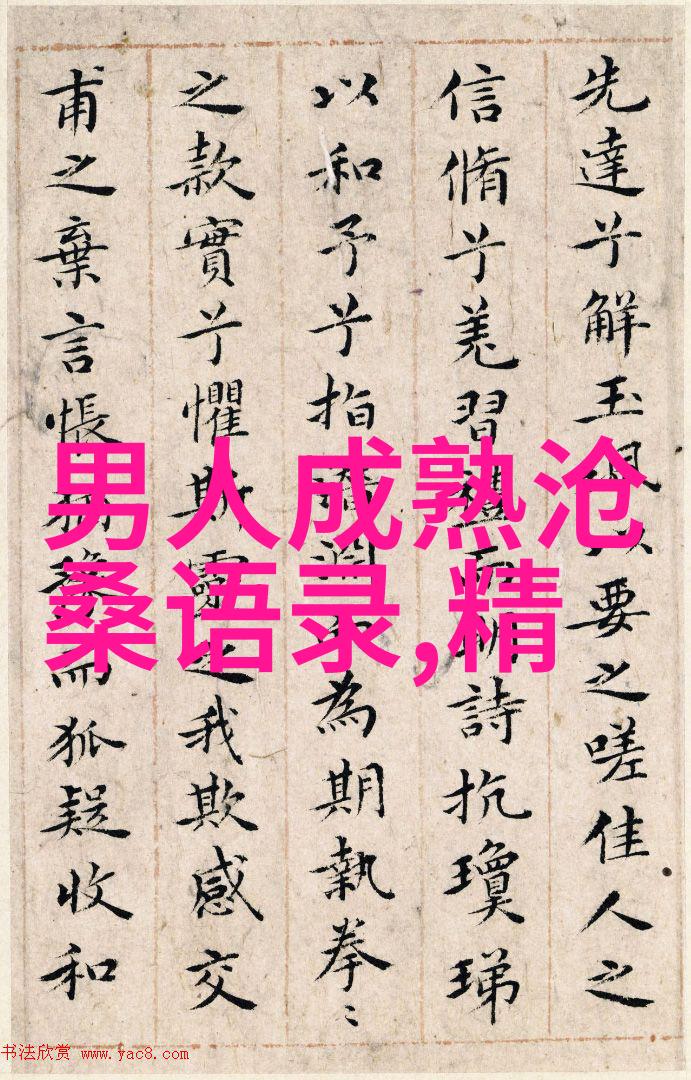 先達兮解玉以要之嗟佳人之
信脩兮羌習禮而明詩抗瓊珶
以和予兮指潛淵而為期執拳〻
之款實兮懼斯靈之我欺感交
甫之棄言悵猶豫而狐疑收和
男人成熟沧
桑语录,精
书法欣赏 www.yac8.com